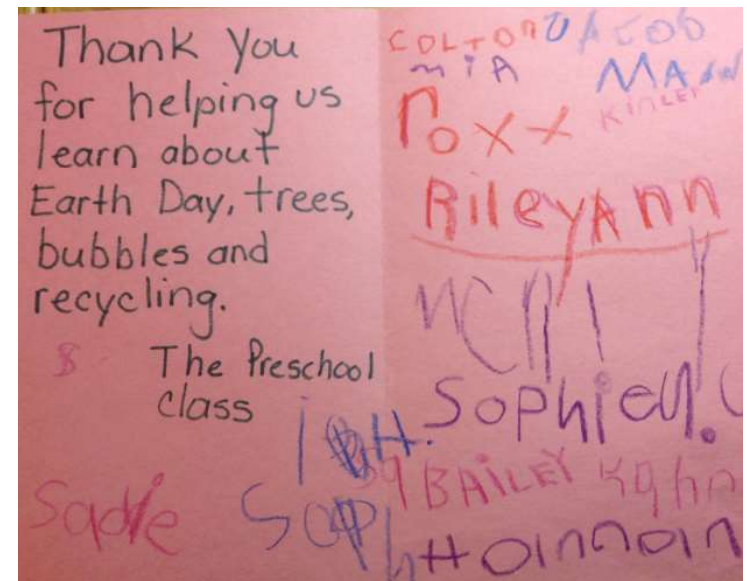 Thank You
for helping us
learn about
Earth Day, trees,
bubbles and
recycling.
The Preschool
class
Sadie
COLTON JACOB
MIA
KINLEY
roxx
RileyAnn
Sophie
BAiLEY
Hannah